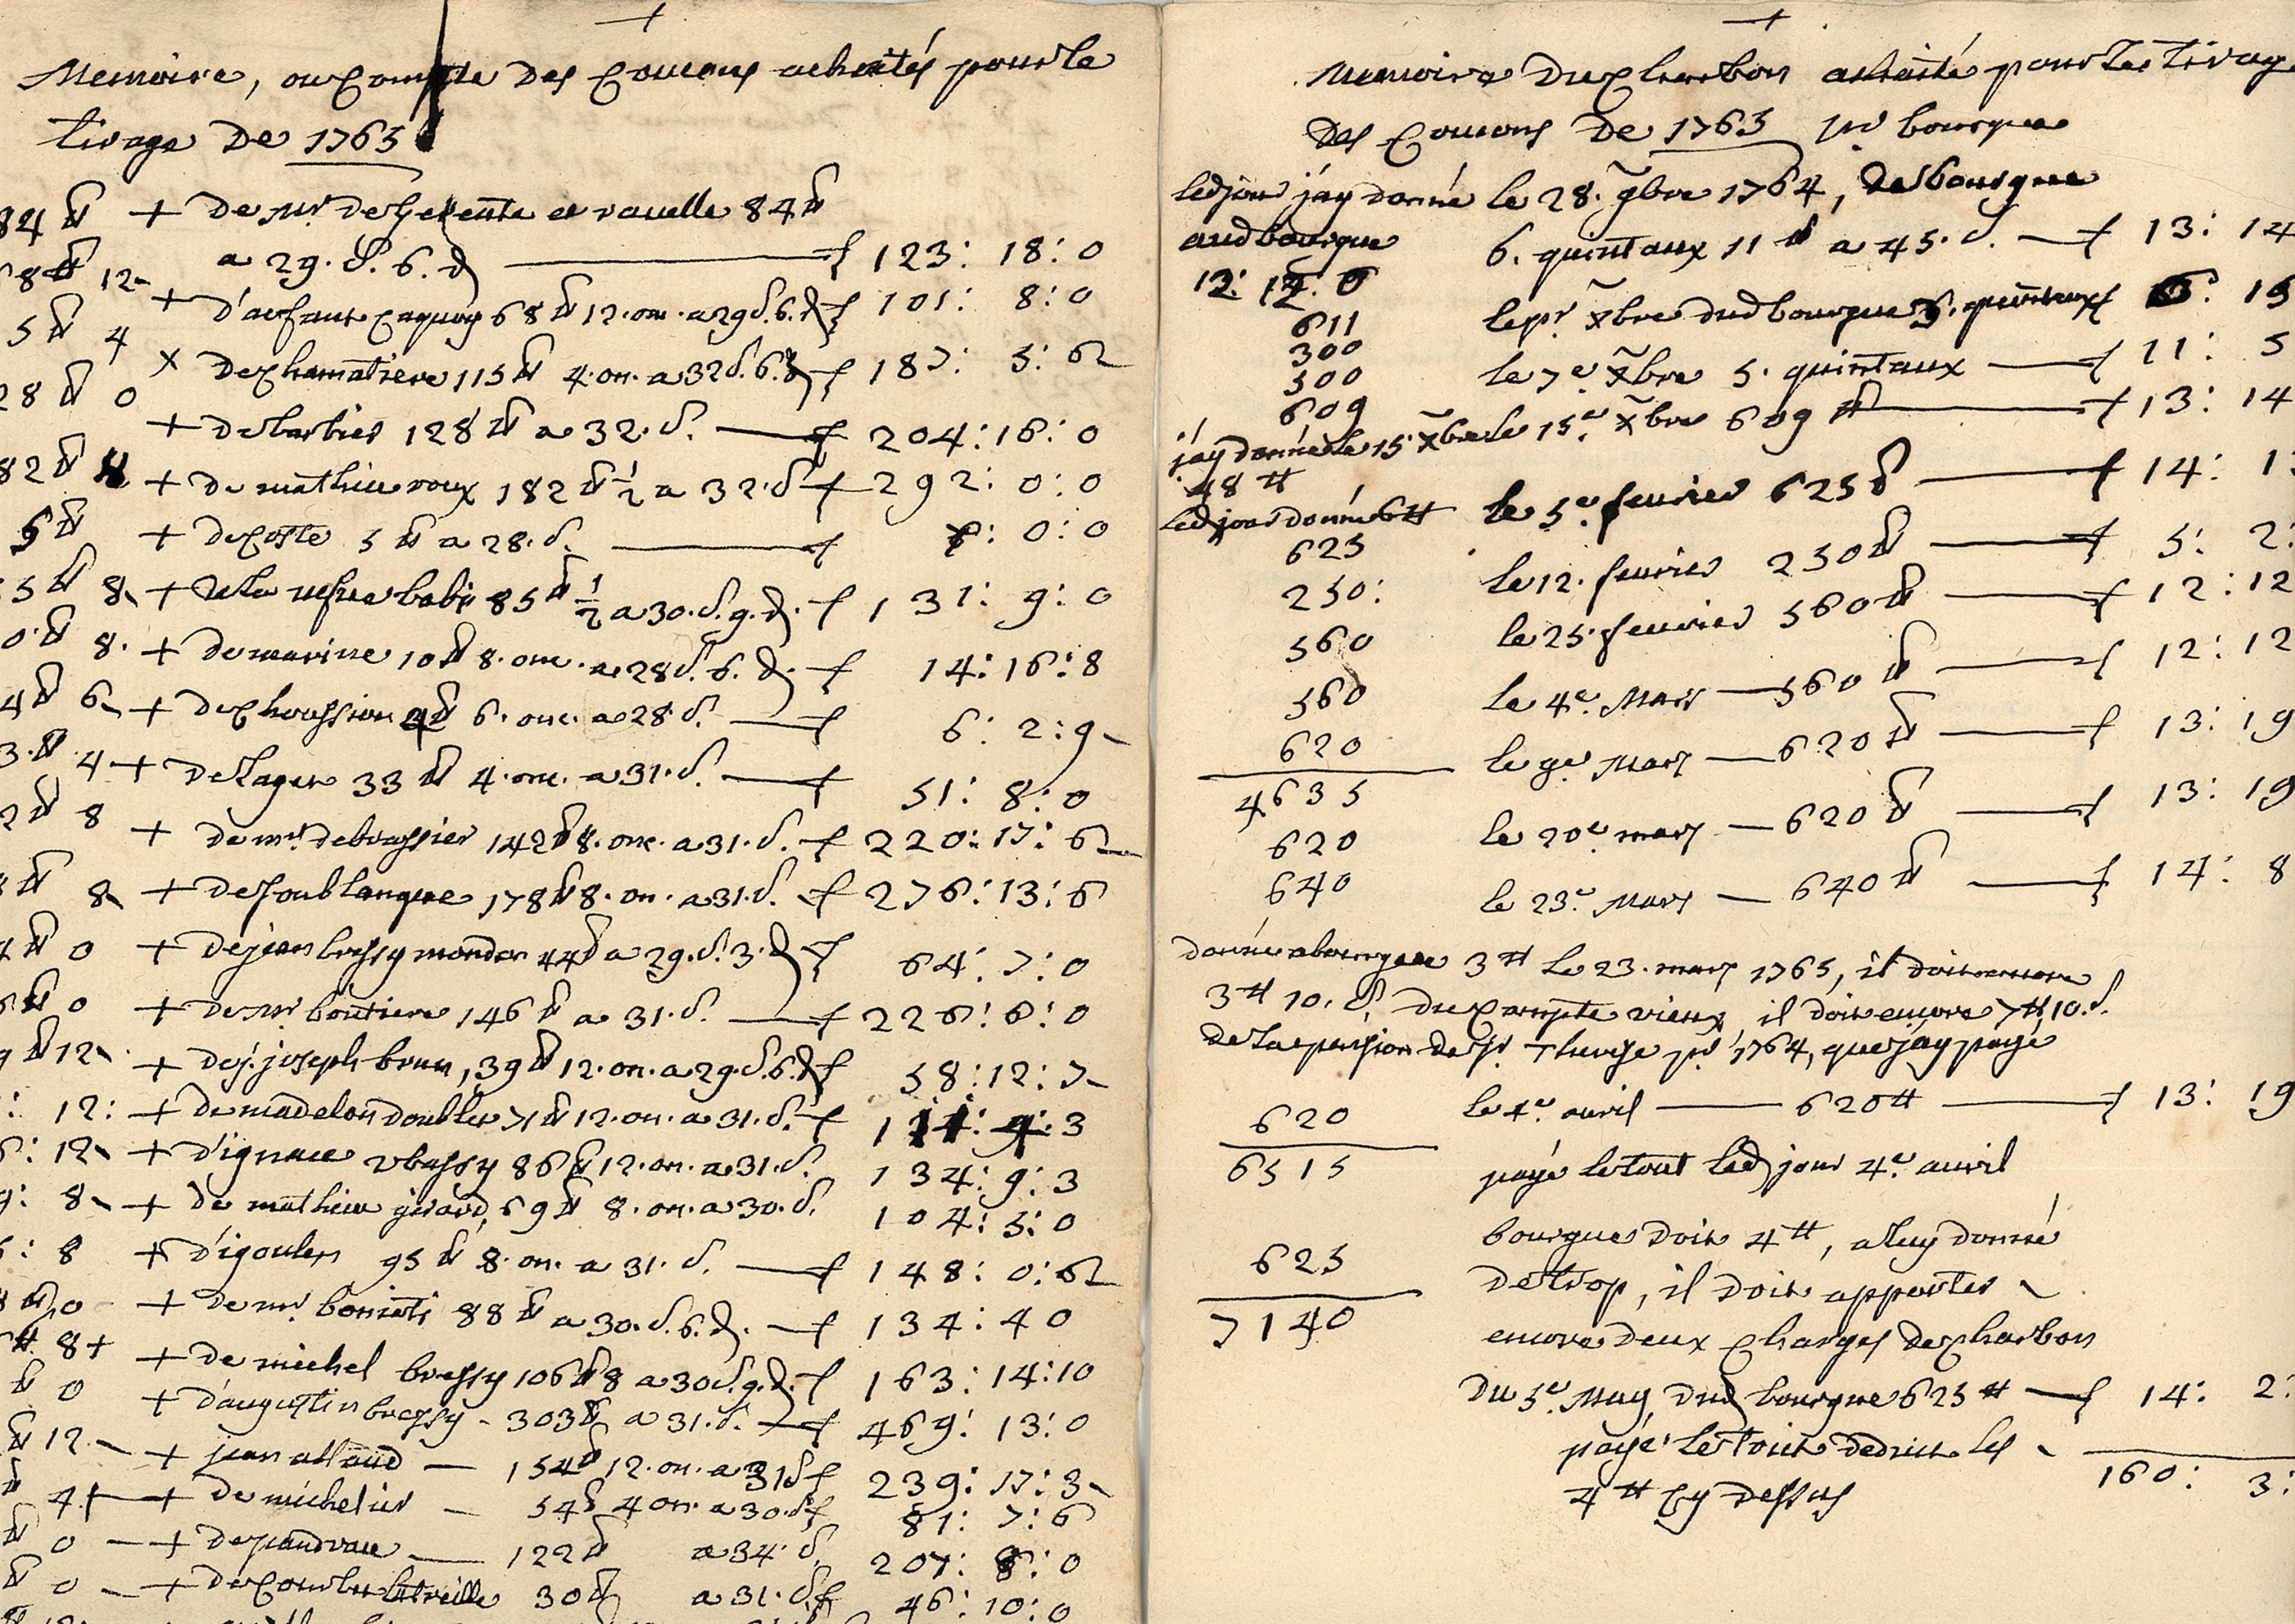 +
Memoire, ou Compte des Coucons achaités pour le
tirage de 1765
84 ₶ + de Mr de et rauelle 84 ₶
a 29. s. 6. d £ 123: 18: 0
68 ₶ 12 + d'acfaut 68 ₶ 12. on. a 29 s. 6. d £ 101: 8: 0
5 ₶ 4 x de Chamatiere 115 ₶ 4. on. a 32 s. 6. d £ 187: 5: 6
28 ₶ 0 + de barbier 128 ₶ a 32. s. £ 204: 16: 0
82 ₶ + de mathieu roux 182 ₶ 1/2 a 32. s £ 292: 0: 0
5 ₶ + de Coste 5 ₶ a 28. s. £ 7: 0: 0
5 ₶ 8 + de la babi 85 ₶ 1/2 a 30. s. 9. d. £ 131: 9: 0
0 ₶ 8. + de marine 10 ₶ 8. onc. a 28 s. 6. d. £ 14: 16: 8
4 ₶ 6 + de Choussion 4 ₶ 6. onc. a 28. s. £ 6: 2: 9
3. ₶ 4 + de Lager 33 ₶ 4. onc. a 31. s. £ 51: 8: 0
2 ₶ 8 + de mr. debrassier 142 ₶ 8. onc. a 31. s. £ 220: 17: 6
8 ₶ 8 + de soublanque 178 ₶ 8. on. a 31. s. £ 276: 13: 6
4 ₶ 0 + de jean bressy mondon 44 ₶ a 29. s. 3. d £ 64: 7: 0
6 ₶ 0 + de Mr boutiere 146 ₶ a 31. s. £ 226: 6: 0
9 ₶ 12 + de j. joseph brun, 39 ₶ 12. on. a 29. s. 6. d £ 58: 12: 7
: 12: + de madelon doublier 71 ₶ 12. on. a 31. s. £ 111: 4: 3
6: 12 + d'ignace 86 ₶ 12. on. a 31. s. 134: 9: 3
9: 8 + de mathieu girard, 69 ₶ 8. on. a 30. s. 104: 5: 0
5: 8 + d'igoulen 95 ₶ 8. on. a 31. s. £ 148: 0: 6
8 ₶ 0 + de mr. bonieti 88 ₶ a 30. s. 6. d. £ 134: 4 0
6 ₶ 8 + + de michel bressy 106 ₶ 8 a 30 s. 9. d. £ 163: 14: 10
₶ 0 + d'augustin bressy - 303 ₶ a 31. s. £ 469: 13: 0
₶ 12 + jean allaud — 154 ₶ 12. on. a 31 s £ 239: 17: 3
₶ 4 + de michelier — 54 ₶ 4 on. a 30. s. £ 81: 7: 6
₶ 0 + de — 122 ₶ a 34 s. 207: 8: 0
₶ 0 + de 30 ₶ a 31. s. £ 46: 10: 0
+
Memoire du Charbon achaité pour Le tirage
des Coucons de 1765 pr bourgue
led jour j'ay donné le 28. 9bre 1764, de bourgue
aud bourgue 6. quintaux 11 ₶ a 45. s. £ 13: 14
13: 14: 0 le pr xbre dud bourgue 3. quintaux 6: 15
611
300 le 7e xbre 5. quintaux £ 11: 5
500
609 le 15e xbre 609 ₶ £ 13: 14
j'ay donné le 15. xbre
48 ₶ le 5e feurier 625 ₶ £ 14: 1
led jour donné 6 ₶
625 le 12. feurier 250 ₶ £ 5: 2:
250: le 25. feurier 560 ₶ £ 12: 12
560 le 4e. Mars — 560 ₶ £ 12: 12
560 le 9e Mars — 620 ₶ £ 13: 19
620
4635 le 20e mars — 620 ₶ £ 13: 19
620
640 le 23e Mars — 640 ₶ £ 14: 8
donné a bourgue 3 ₶ le 23. mars 1765, il doit encore
3 ₶ 10. s, du Compte vieux, il doit encore 7 ₶ 10. s.
de La pension de pr 1764, que j'ay payé
620 le 4e. auril — 620 ₶ £ 13: 19
6515 payé le tout led jour 4e. auril
bourgue doit 4 ₶, a luy donné
625 de trop, il doit apporter
7140 encore deux Charges de Charbon
du 5e. May, dud bourgue 625 ₶ £ 14: 2:
payé le tout deduit les
4 ₶ Cy dessus 160: 3: